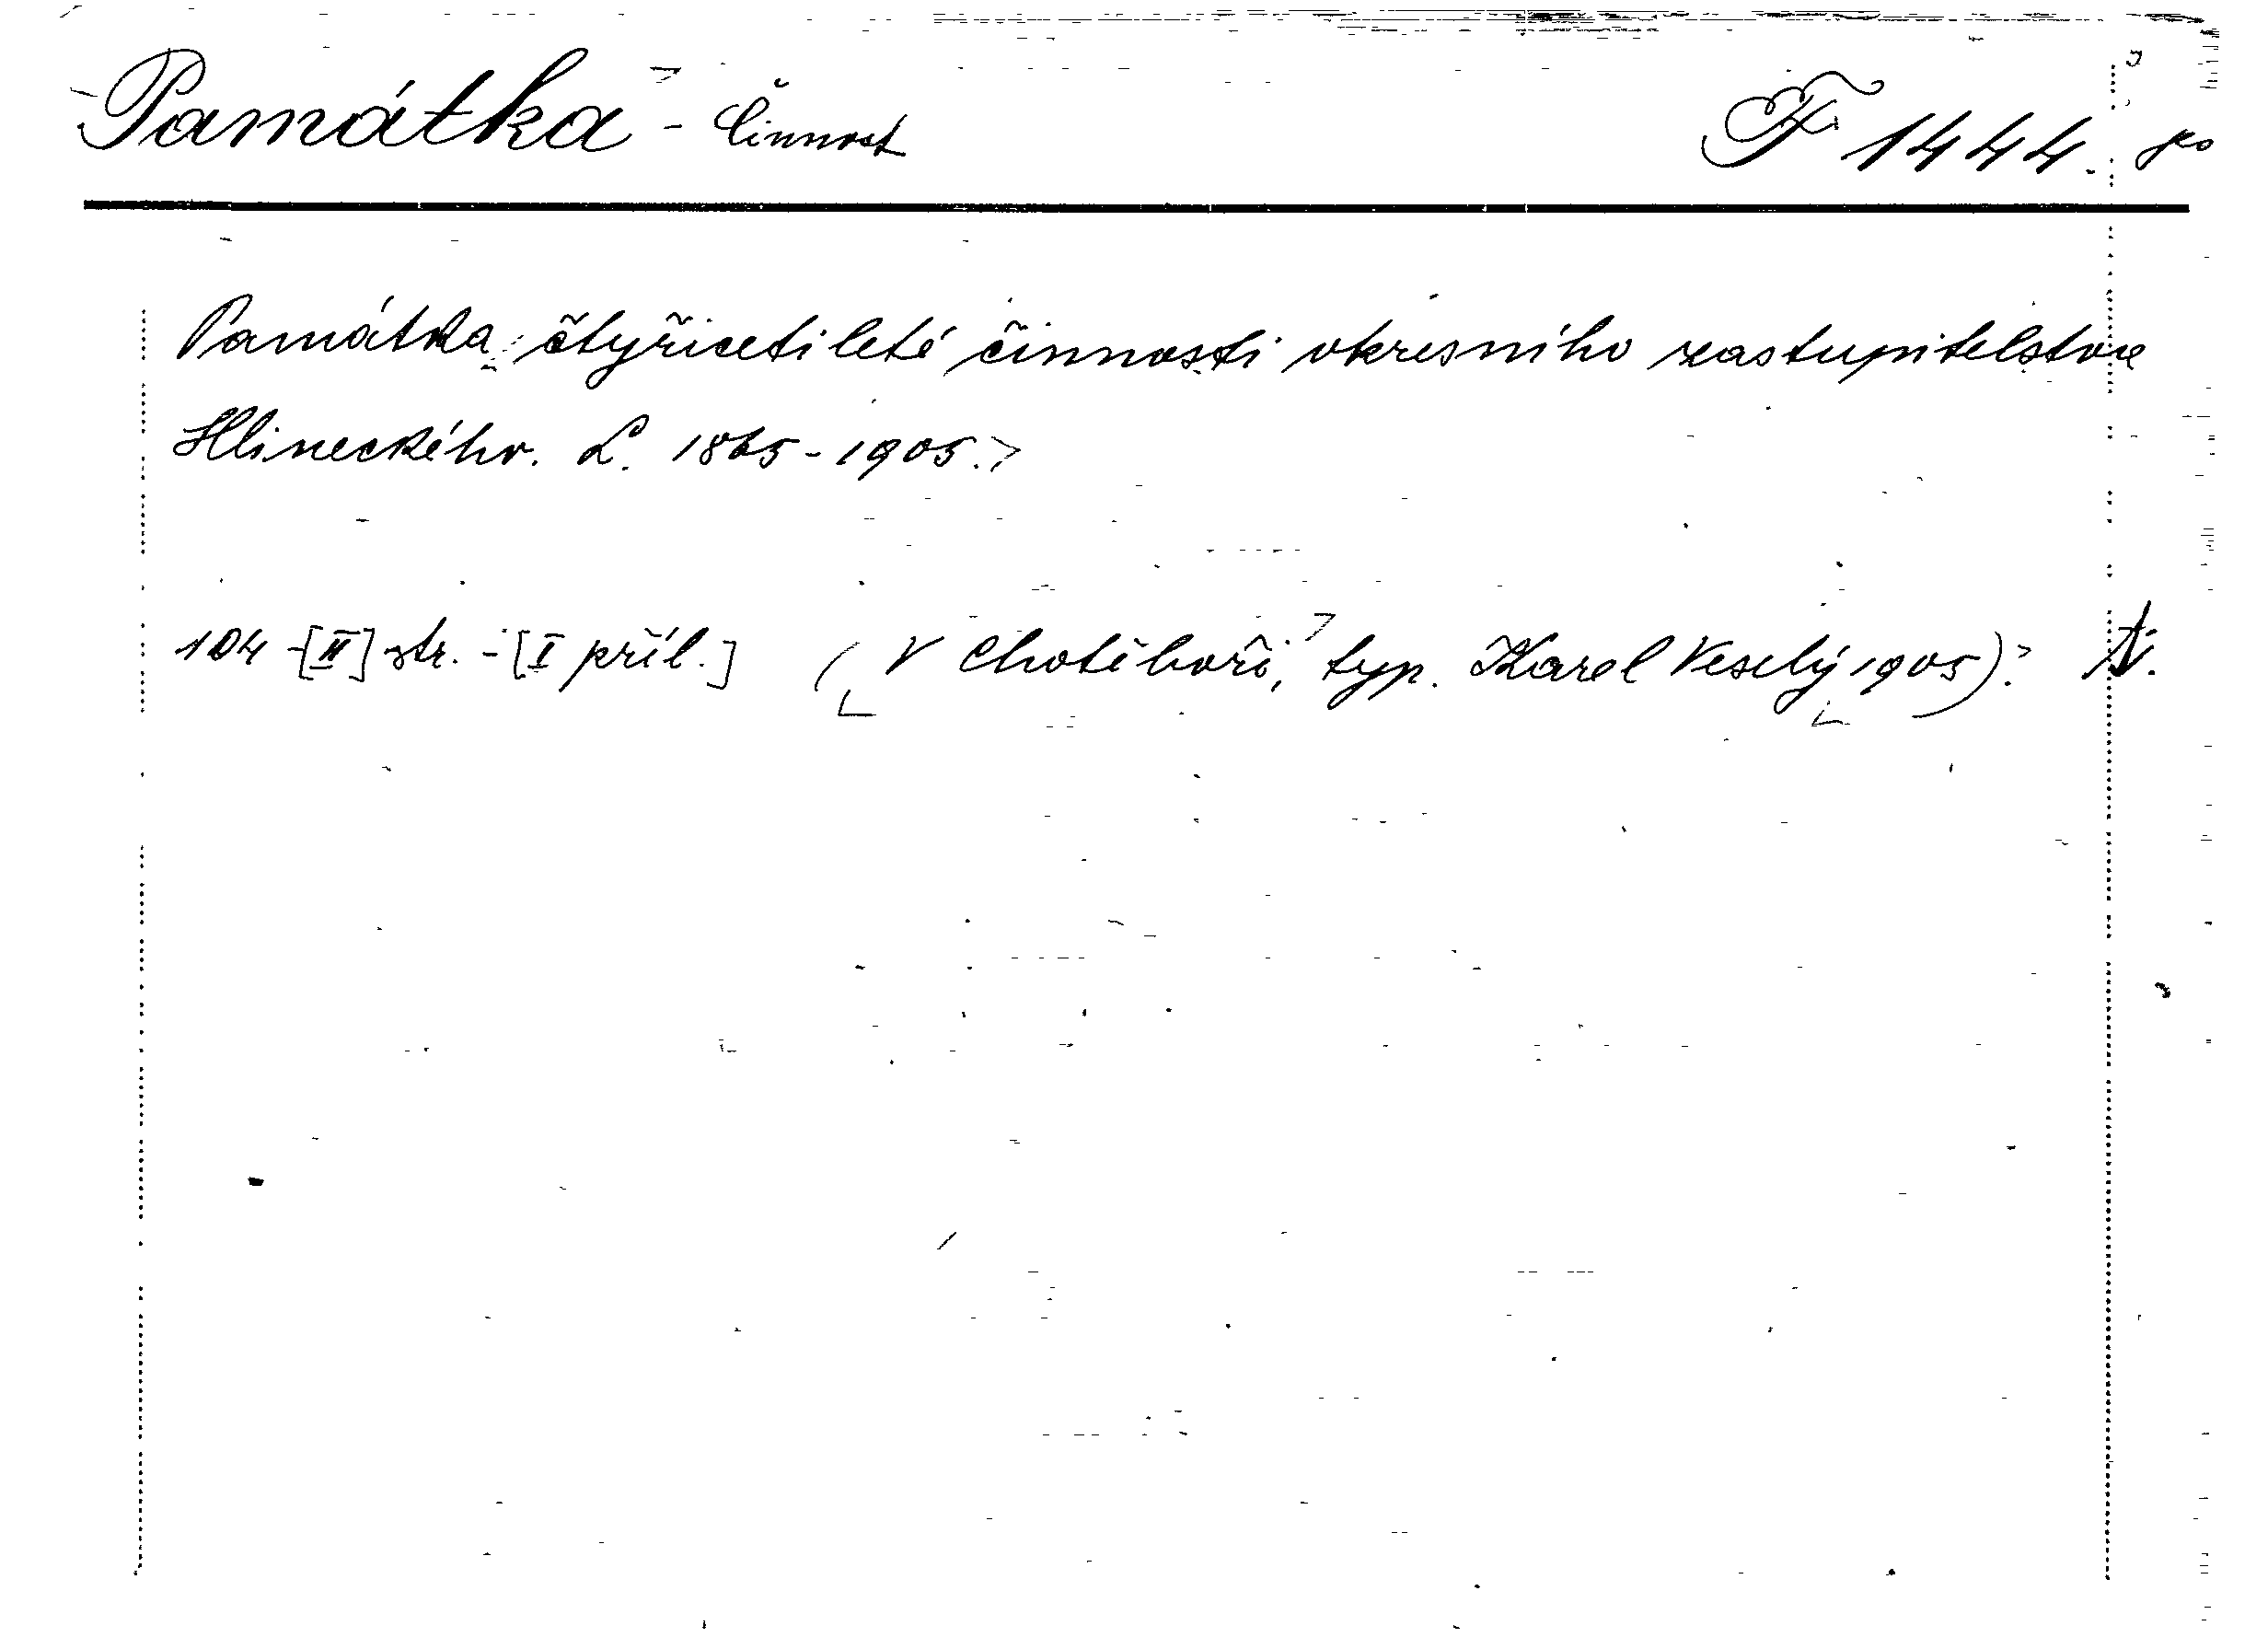 Památka - Činnost F 1444.
Památka čtyřicetileté činnosti okresního zastupitelstva
Hlineckého. L. 1865-1905.
104-[II] str. - [I příl.] (V Chotěboři, typ. Karel Veselý 1905).